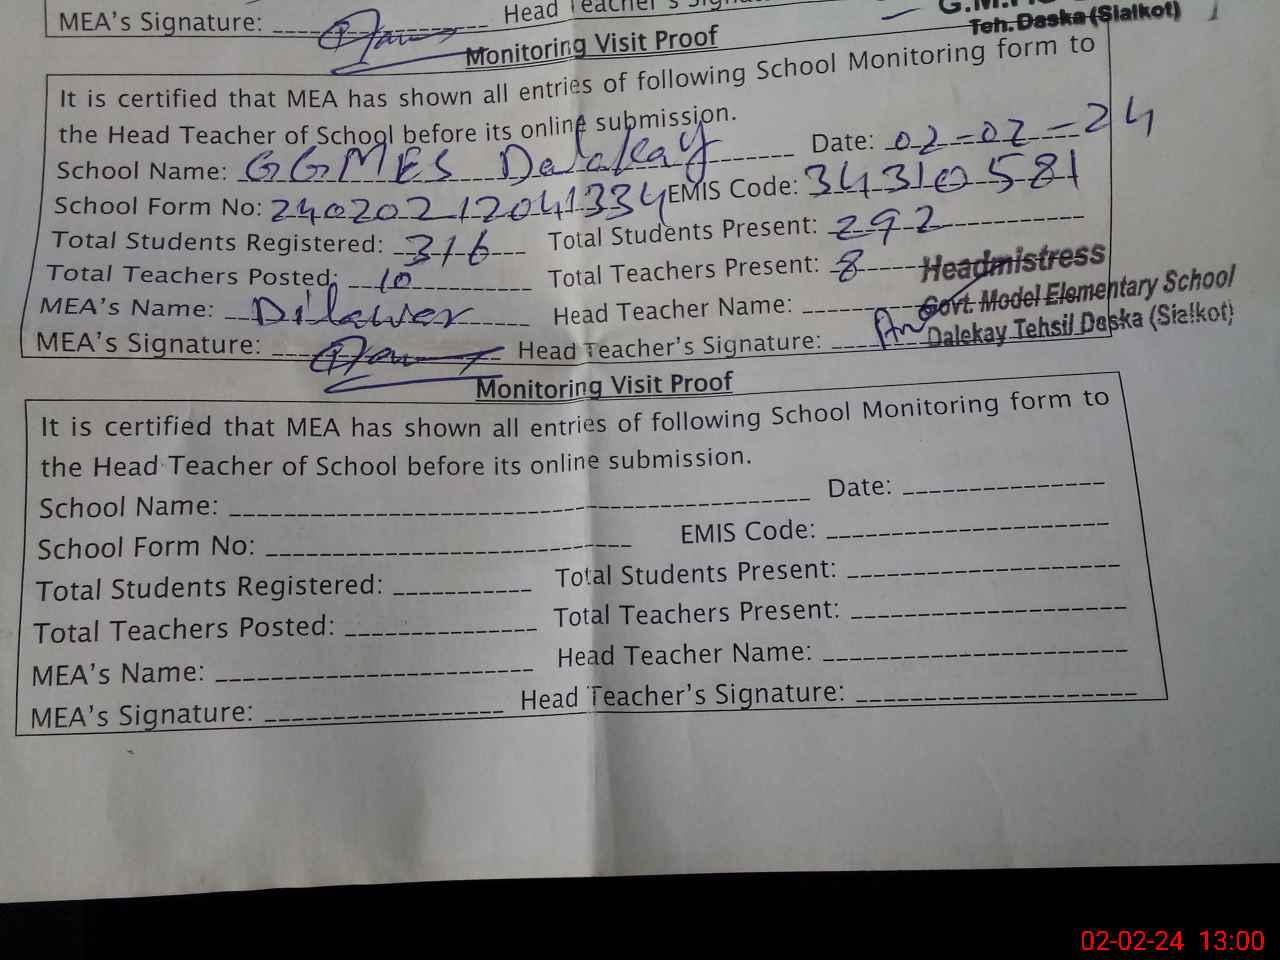 MEA's Signature: Head Teacher's
Teh. Daska (Sialkot)
Monitoring Visit Proof
It is certified that MEA has shown all entries of following School Monitoring form to
the Head Teacher of School before its online submission.
School Name: GGMES Dalakay Date: 02-02-24
School Form No: 24020212041334 EMIS Code: 34310581
Total Students Registered: 316 Total Students Present: 292
Total Teachers Posted: 10 Total Teachers Present: 8
Headmistress
MEA's Name: Dilawer Head Teacher Name:
Govt. Model Elementary School
MEA's Signature: Head Teacher's Signature:
Dalekay Tehsil Daska (Sialkot)
Monitoring Visit Proof
It is certified that MEA has shown all entries of following School Monitoring form to
the Head Teacher of School before its online submission.
School Name: Date:
School Form No: EMIS Code:
Total Students Registered: Total Students Present:
Total Teachers Posted: Total Teachers Present:
MEA's Name: Head Teacher Name:
MEA's Signature: Head Teacher's Signature:
02-02-24 13:00